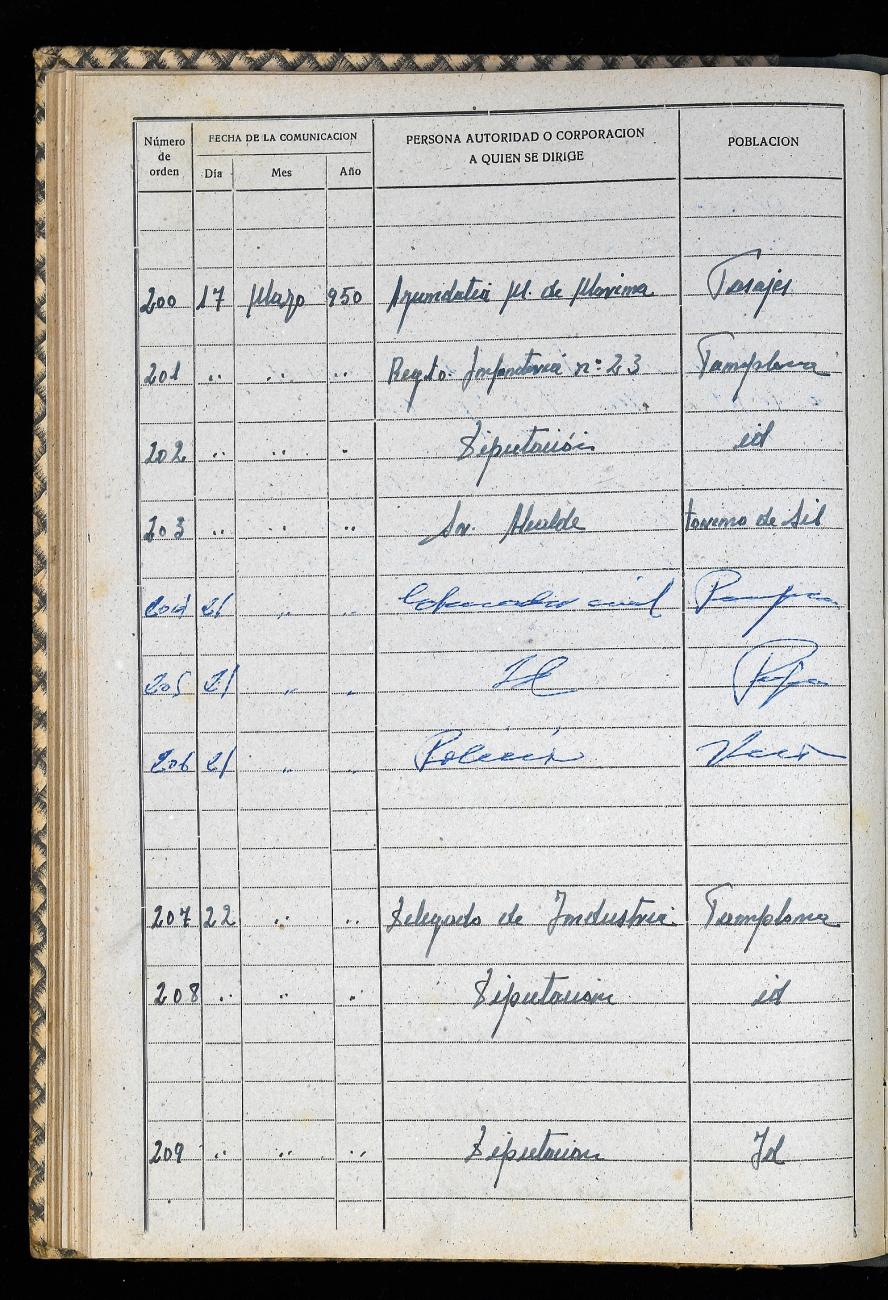 Número de orden FECHA DE LA COMUNICACION PERSONA AUTORIDAD O CORPORACION A QUIEN SE DIRIGE POBLACION
Día Mes Año
200 17 Marzo 950 Ayundatia M. de Marina Pasajes
201 .. .. .. Regto. Infanteria nº 23 Pamplona
202 .. .. . Diputación id
203 .. .. .. Sr. Alcalde toreno de Sil
204 21 " " Gobernador civil Pamplona
205 21 " " Id
206 21 " " Policia
207 22 .. .. Delegado de Industria Pamplona
208 .. .. .. Diputacion id
209 .. .. .. Diputacion Id